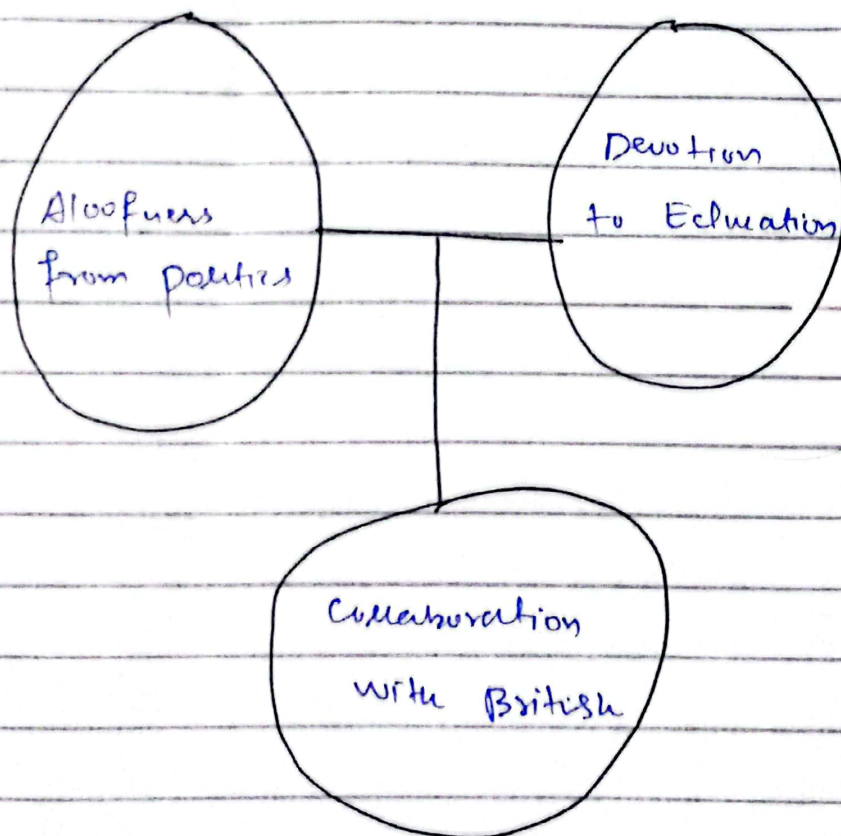 Aloofness
from politics
Devotion
to Education
Collaboration
with British